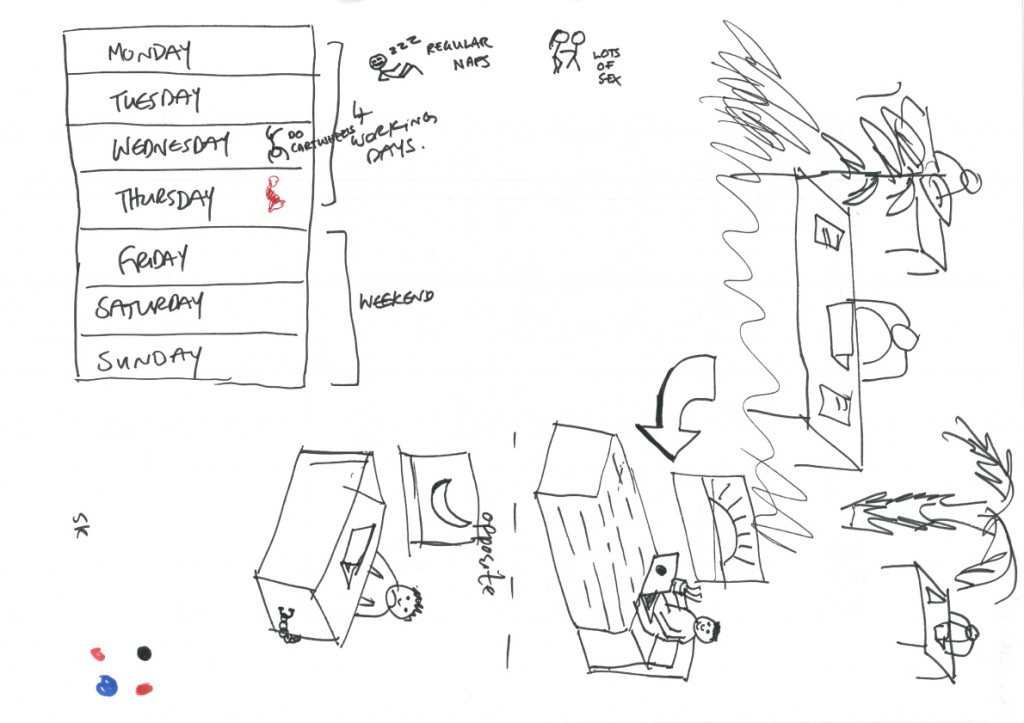 MONDAY
TUESDAY
WEDNESDAY
THURSDAY
FRIDAY
SATURDAY
SUNDAY
DO
CARTWHEELS
4
WORKING
DAYS.
WEEKEND
zzz
REGULAR
NAPS
LOTS
OF
SEX
SK
opposite